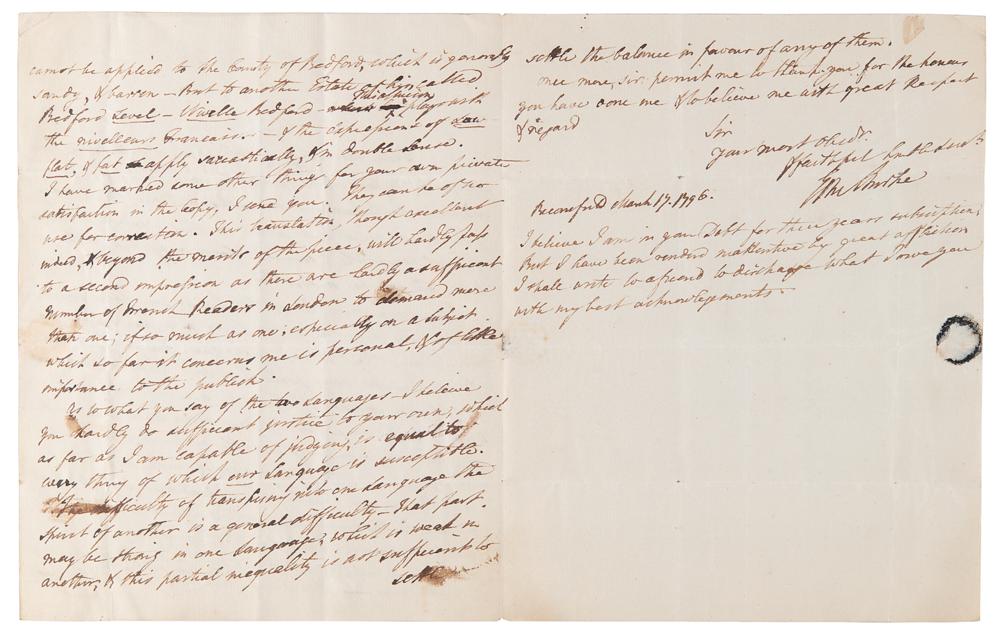 cannot be applied to the County of Bedford, which is generally
sandy, & barren – But to another Estate of his called
Bedford Level – Nivelle Bedford – plays with
the nivelleurs Francais. – & the expressions of Low
flat, & fat apply sarcastically, & in double sense.
I have marked some other things for your own private
satisfaction in the Copy, I send you. They can be of no
use for correction. This translation, though excellent
indeed, & beyond the merits of the piece, will hardly pass
to a second impression as there are hardly a sufficient
number of French Readers in London to demand more
than one; if so much as one, especially on a subject
which so far it concerns me is personal, & of little
importance to the publick.
As to what you say of the two Languages – I believe
you hardly do sufficient justice to your own; which
as far as I am capable of judging, is equal to
every thing of which our Language is susceptible.
The difficulty of transfusing into one Language the
spirit of another is a general difficulty – That part
may be strong in one Language, which is weak in
another, & this partial inequality is not sufficient to
settle the balance in favour of any of them.
once more, Sir, permit me to thank you for the honour
you have done me & to believe me with great Respect
& regard
Sir
your most Obedt
& faithful humble Servt
Edm Burke
Beconsfield March 17. 1796.
I believe I am in your Debt for three years subscription;
But I have been rendered inattentive by great affliction
I shall write to a friend to discharge what I owe you
with my best acknowledgements.